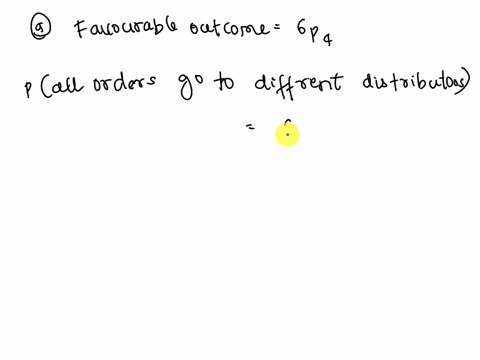 (a) Favourable outcome = 6p4
P (all orders go to diffrent distributors)
=